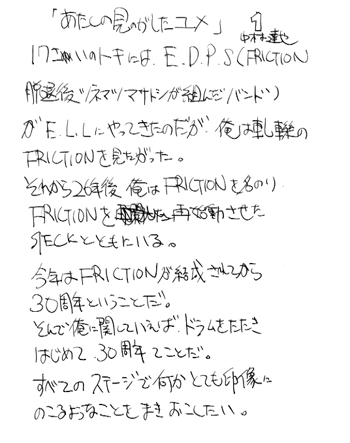 「あたしの見のがしたユメ」 1
中村達也
17さいのトキには、E.D.P.S(FRICTION
脱退後ツネマツマサトシが組んだバンド)
がE.L.Lにやってきたのだが、俺は軋轢の
FRICTIONを見たかった。
それから26年後 俺はFRICTIONを名のり
FRICTIONを再始動させた
RECKとともにいる。
今年はFRICTIONが結成されてから
30周年ということだ。
そんで俺に関していえば、ドラムをたたき
はじめて30周年てことだ。
すべてのステージで何かとても印像に
のこるよなことをまきおこしたい。